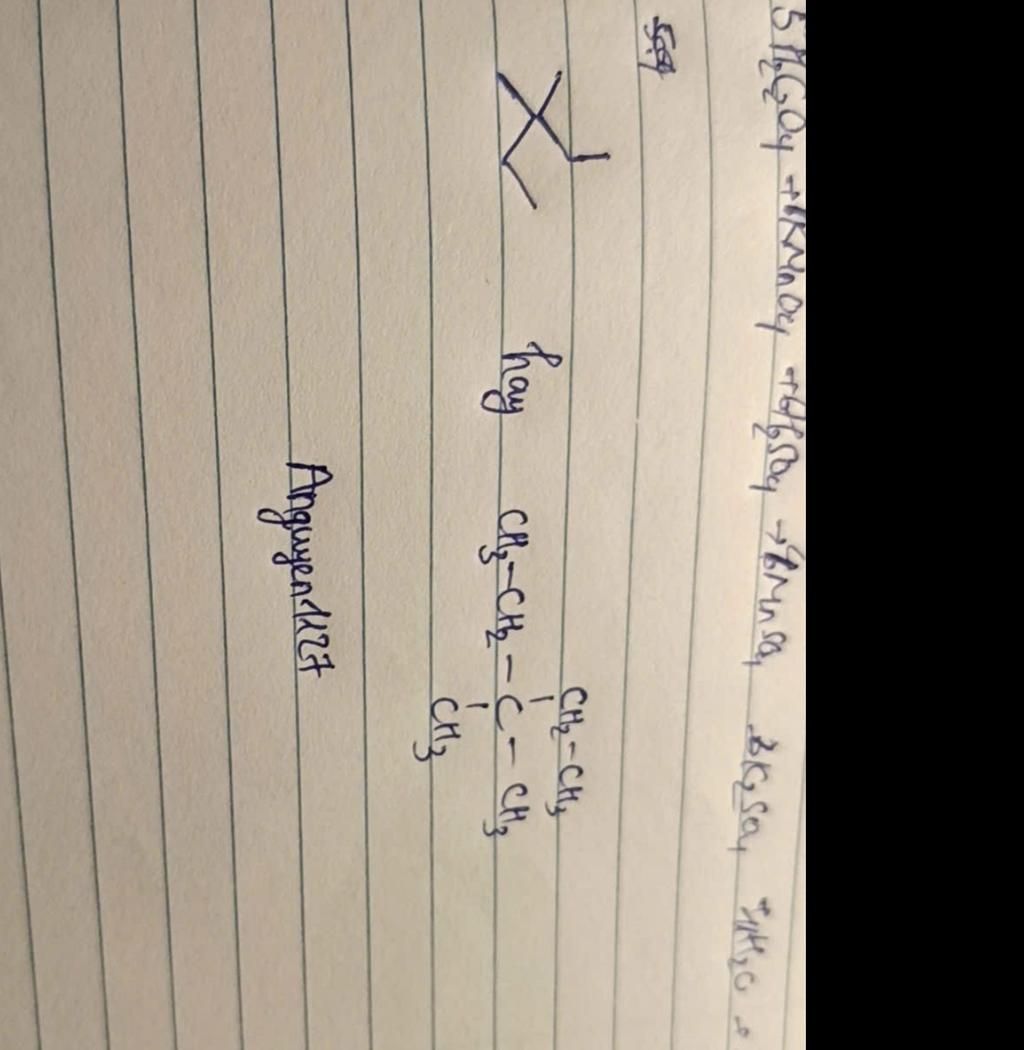 5H₂C₂O₄ + KMnO₄ + H₂SO₄ → MnSO₄ K₂SO₄ + H₂O +
CH₂-CH₃
hay CH₃-CH₂-C-CH₃
CH₃
Anguyen1127